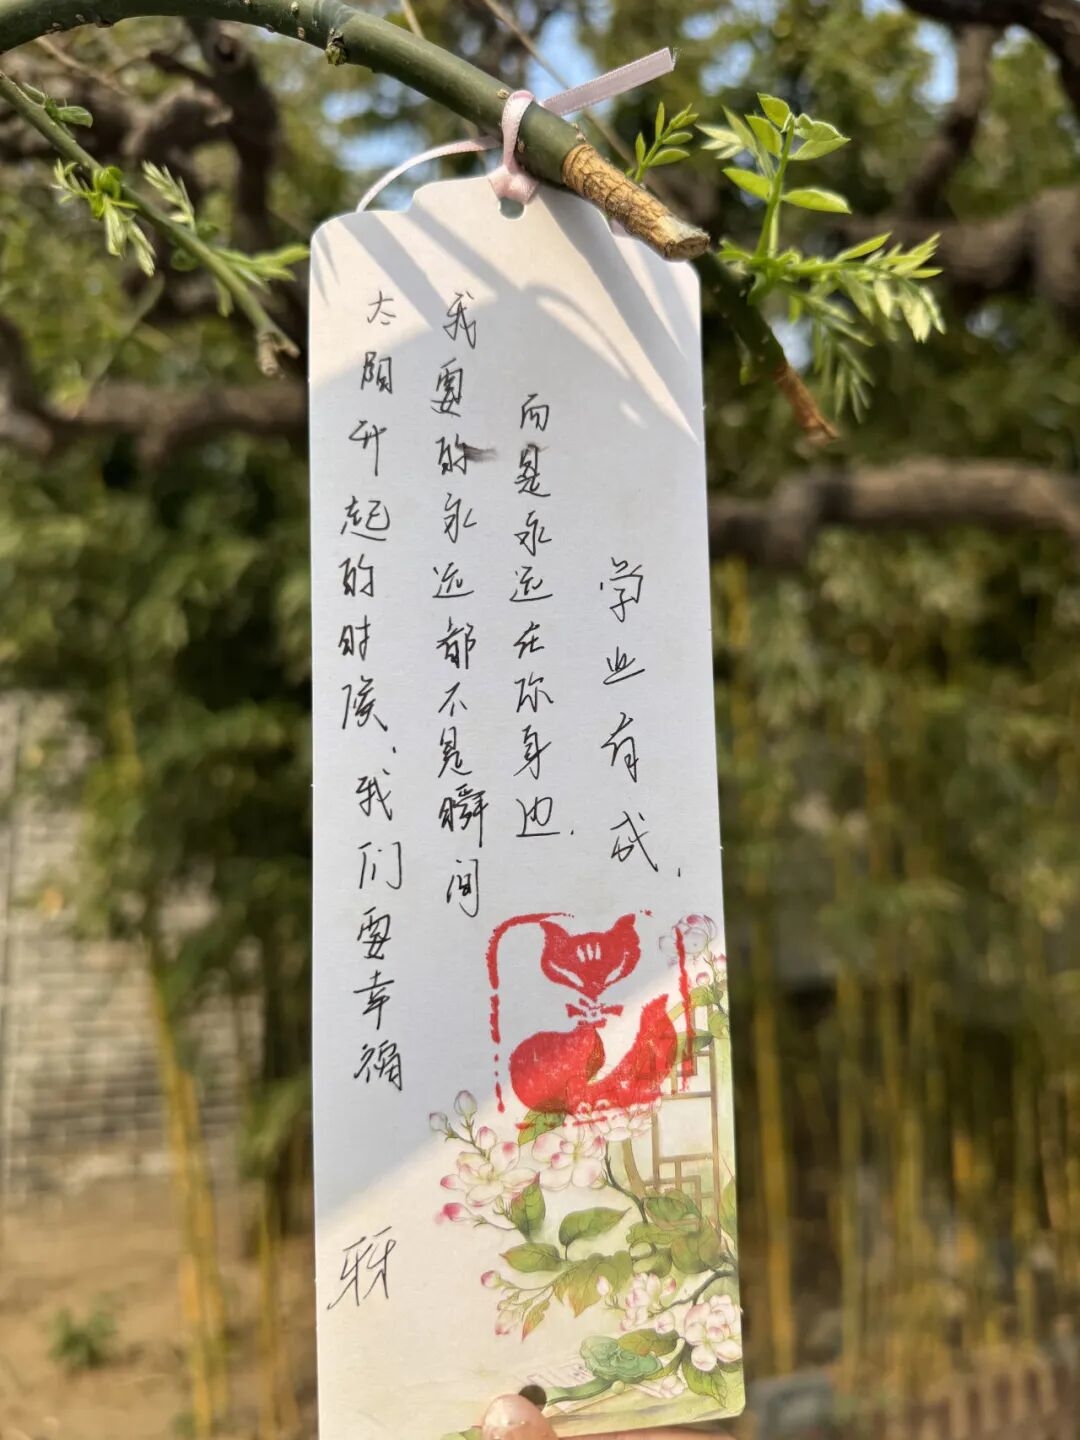 太阳升起的时候、我们要幸福
我要的永远都不是瞬间
而是永远在你身边.
学业有成.